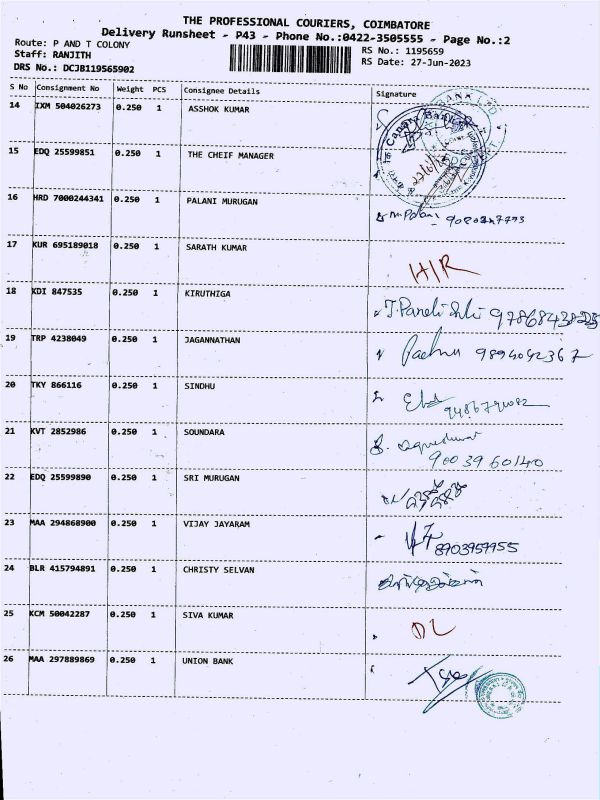 THE PROFESSIONAL COURIERS, COIMBATORE
Delivery Runsheet - P43 - Phone No.:0422-3505555 - Page No.:2
Route: P AND T COLONY
Staff: RANJITH
DRS No.: DCJB119565902
RS No.: 1195659
RS Date: 27-Jun-2023
S No Consignment No Weight PCS Consignee Details Signature
14 IXM 504026273 0.250 1 ASSHOK KUMAR
15 EDQ 25599851 0.250 1 THE CHEIF MANAGER
16 HRD 7000244341 0.250 1 PALANI MURUGAN
17 KUR 695189018 0.250 1 SARATH KUMAR H/R
18 KDI 847535 0.250 1 KIRUTHIGA
19 TRP 4238049 0.250 1 JAGANNATHAN 9894092367
20 TKY 866116 0.250 1 SINDHU
21 KVT 2852986 0.250 1 SOUNDARA 9003960140
22 EDQ 25599890 0.250 1 SRI MURUGAN
23 MAA 294868900 0.250 1 VIJAY JAYARAM 8903959955
24 BLR 415794891 0.250 1 CHRISTY SELVAN
25 KCM 50042287 0.250 1 SIVA KUMAR DL
26 MAA 297889869 0.250 1 UNION BANK